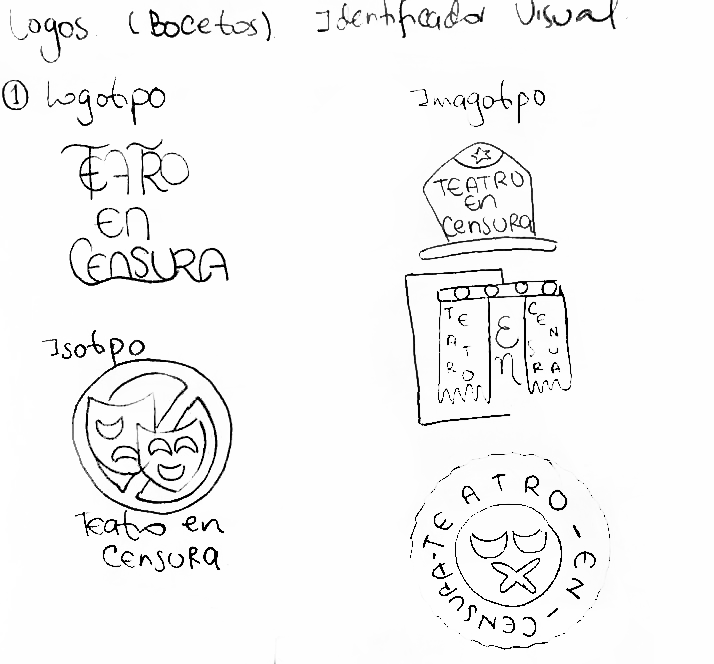 Logos (Bocetos) Identificador Visual
① Logotipo
TEATRO
En
CENSURA
Isotipo
Teatro en
CENSURA
Imagotipo
TEATRO
En
CENSURA
TEATRO En CENSURA
TEATRO-EN-CENSURA-